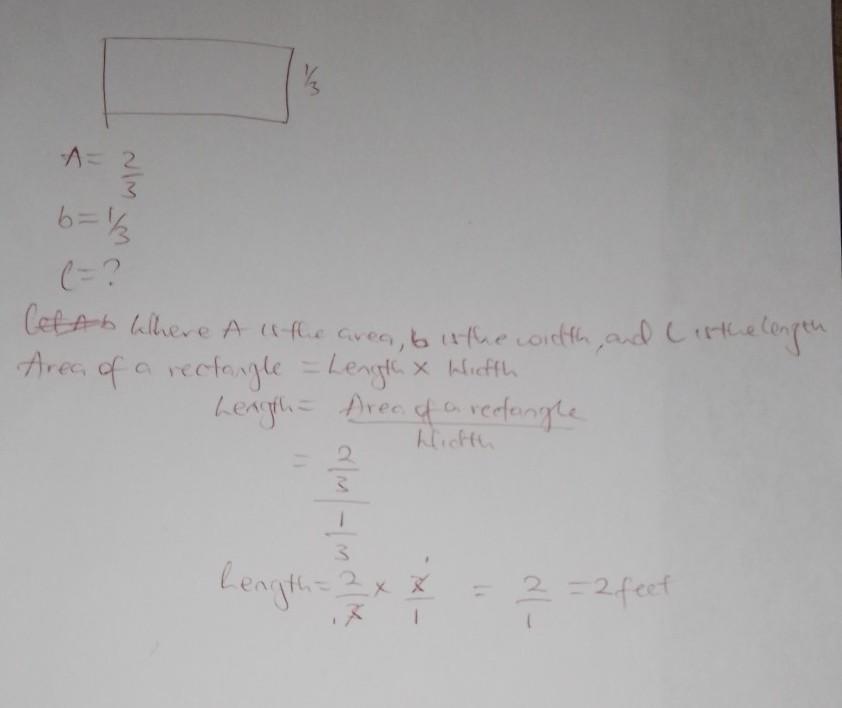 1/3
A = 2/3
b = 1/3
l = ?
Let A b Where A is the area, b is the width, and L is the length
Area of a rectangle = Length × Width
Length = Area of a rectangle
Width
= 2/3
1/3
Length = 2/3 × 3/1 = 2/1 = 2 feet